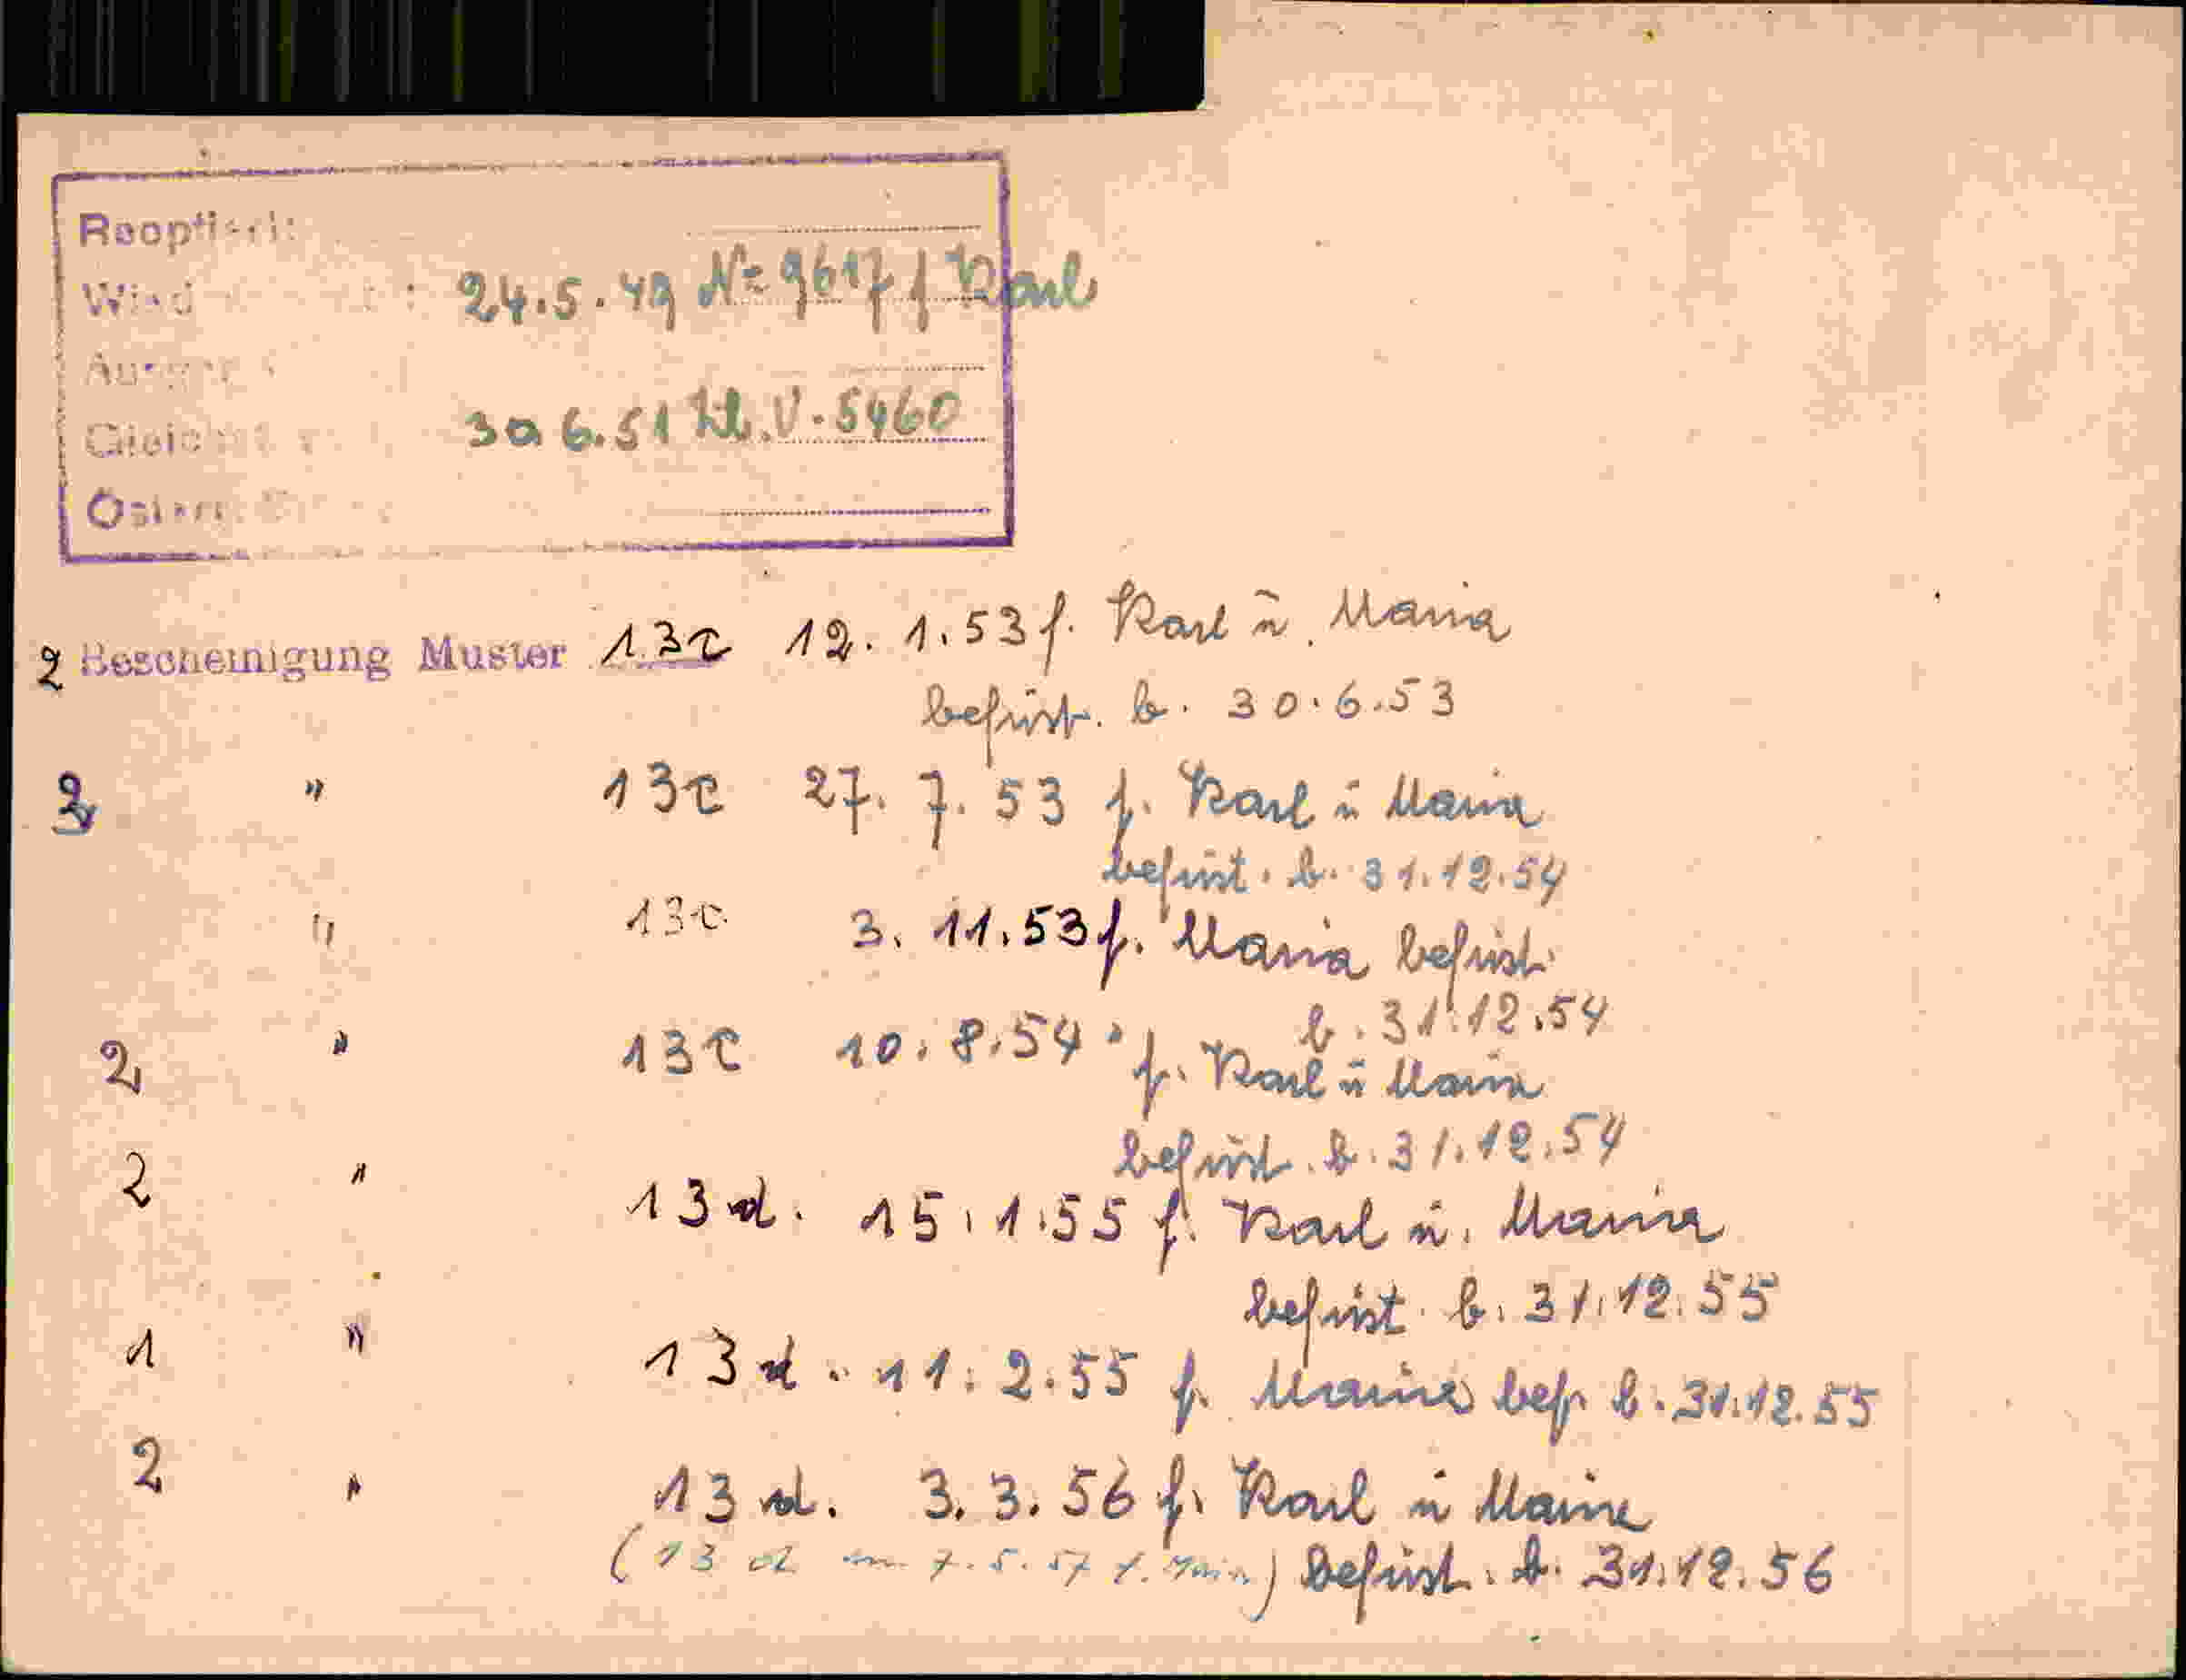 Reoptiert:
Wied : 24.5.49 № 9617 f Karl
30 6.51 Zl. V. 5460
2 Bescheinigung Muster 13c 12. 1. 53 f. Karl u. Maria
befrist. b. 30.6.53
2 " 13c 27. 7. 53 f. Karl u Maria
befrist. b. 31.12.54
" 13c 3. 11. 53 f. Maria befrist.
b. 31.12.54
2 " 13c 10. 8. 54 f. Karl u Maria
befrist. b. 31.12.54
2 " 13d. 15. 1. 55 f. Karl u. Maria
befrist. b. 31.12.55
1 " 13d. 11. 2. 55 f. Maria bef. b. 31.12.55
2 " 13d. 3. 3. 56 f. Karl u Maria
(13 d am 7. 5. 57 f. Maria) befrist. b. 31.12.56